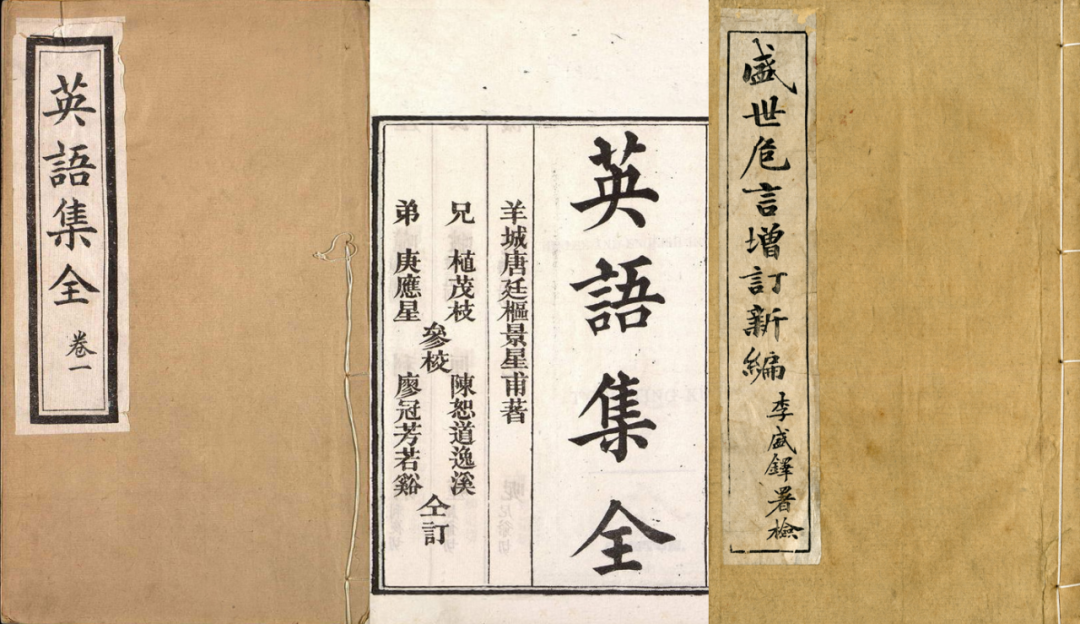 英語集全
卷一
英語集全
羊城唐廷樞景星甫著
兄 植茂枝
弟 庚應星
參校
陳恕道逸溪
廖冠芳若谿
仝訂
盛世危言增訂新編
李盛鐸署檢